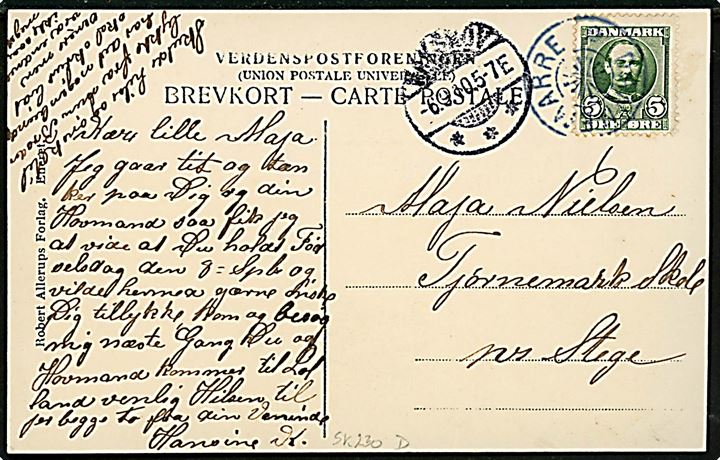 VERDENSPOSTFORENINGEN
(UNION POSTALE UNIVERSELLE)
BREVKORT — CARTE POSTALE
NAKSKOV
6.9.10.5-7E
AARRE
DANMARK
5 5
ØRE ØRE
Robert Allerups Forlag,
Kære lille Maja.
Jeg gaar tit og tæn
ker paa Dig og din
Hovmand saa fik jeg
at vide at Du holdt Fød
selsdag den 8= Spb og
vilde hermed gærne ønske
Dig tillykke kom og besøg
mig næste Gang Du og
Hovmand kommer til Lol
land venlig Hilsen til
jer begge to fra din Veninde
Hansine K.
Maja Nielsen
Tjørnemark Skole
pr Stege
SK230 D